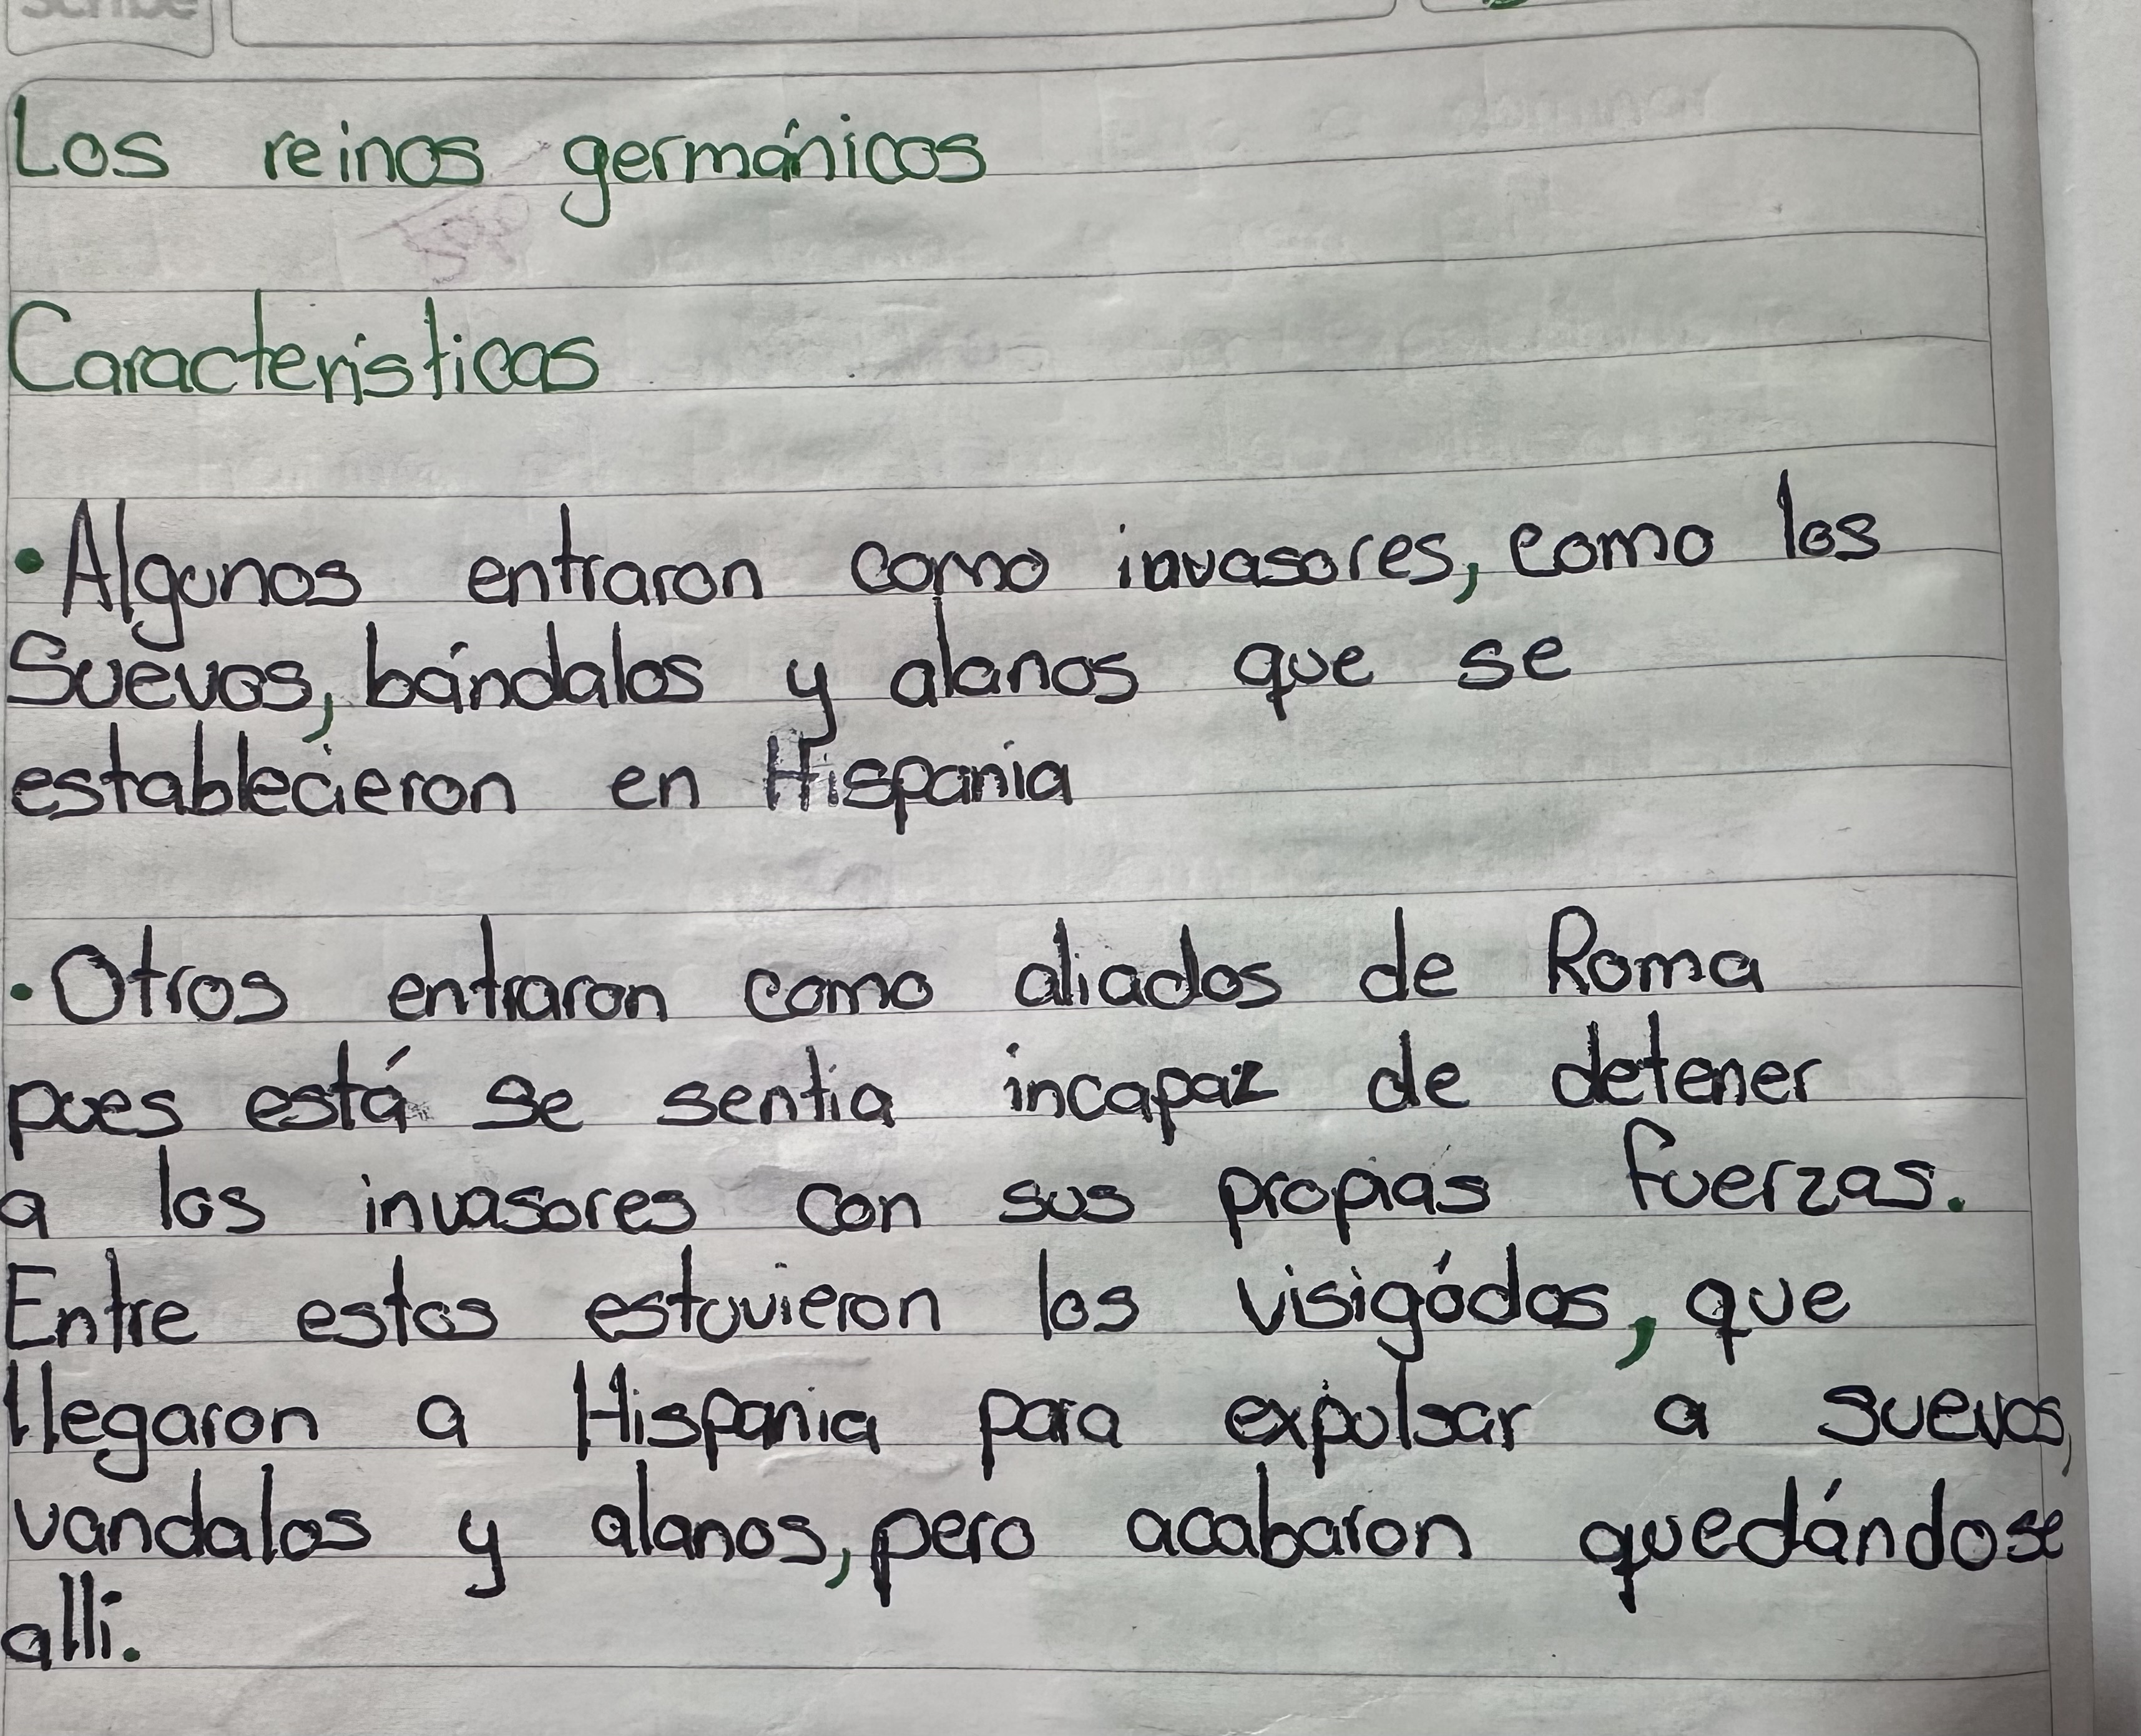 Scribe
Los reinos germánicos
Caracteristicas
• Algunos entraron como invasores, como los
Suevos, bándalos y alanos que se
establecieron en Hispania
• Otros entraron como aliados de Roma
pues está se sentia incapaz de detener
a los invasores con sus propias fuerzas.
Entre estos estuvieron los visigódos, que
llegaron a Hispania para expulsar a suevos,
vandalos y alanos, pero acabaron quedándose
alli.